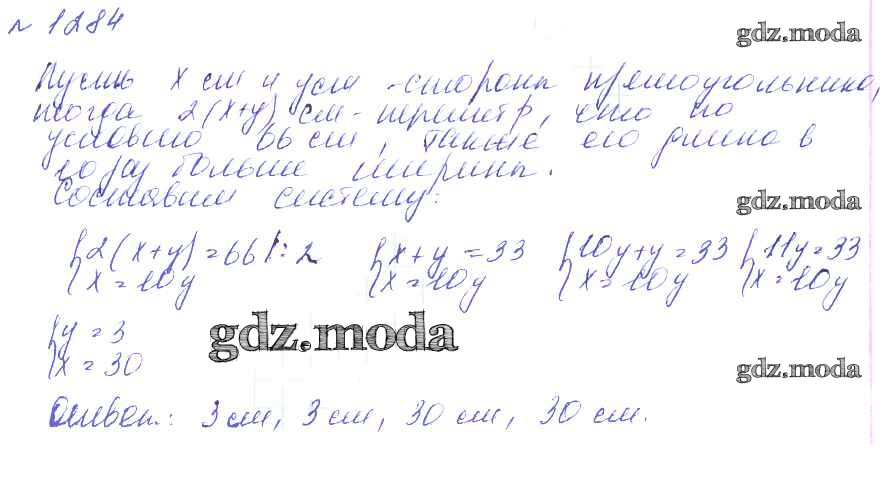 № 1284
gdz.moda
Пусть x см и y см - стороны прямоугольника,
тогда 2(x+y) см - периметр, что по
условию 66 см, также его длина в
10 раз больше ширины.
Составим систему:
gdz.moda
{2(x+y)=66 |:2 {x+y=33 {10y+y=33 {11y=33
{x=10y {x=10y {x=10y {x=10y
{y=3
{x=30
gdz.moda
gdz.moda
Ответ: 3 см, 3 см, 30 см, 30 см.